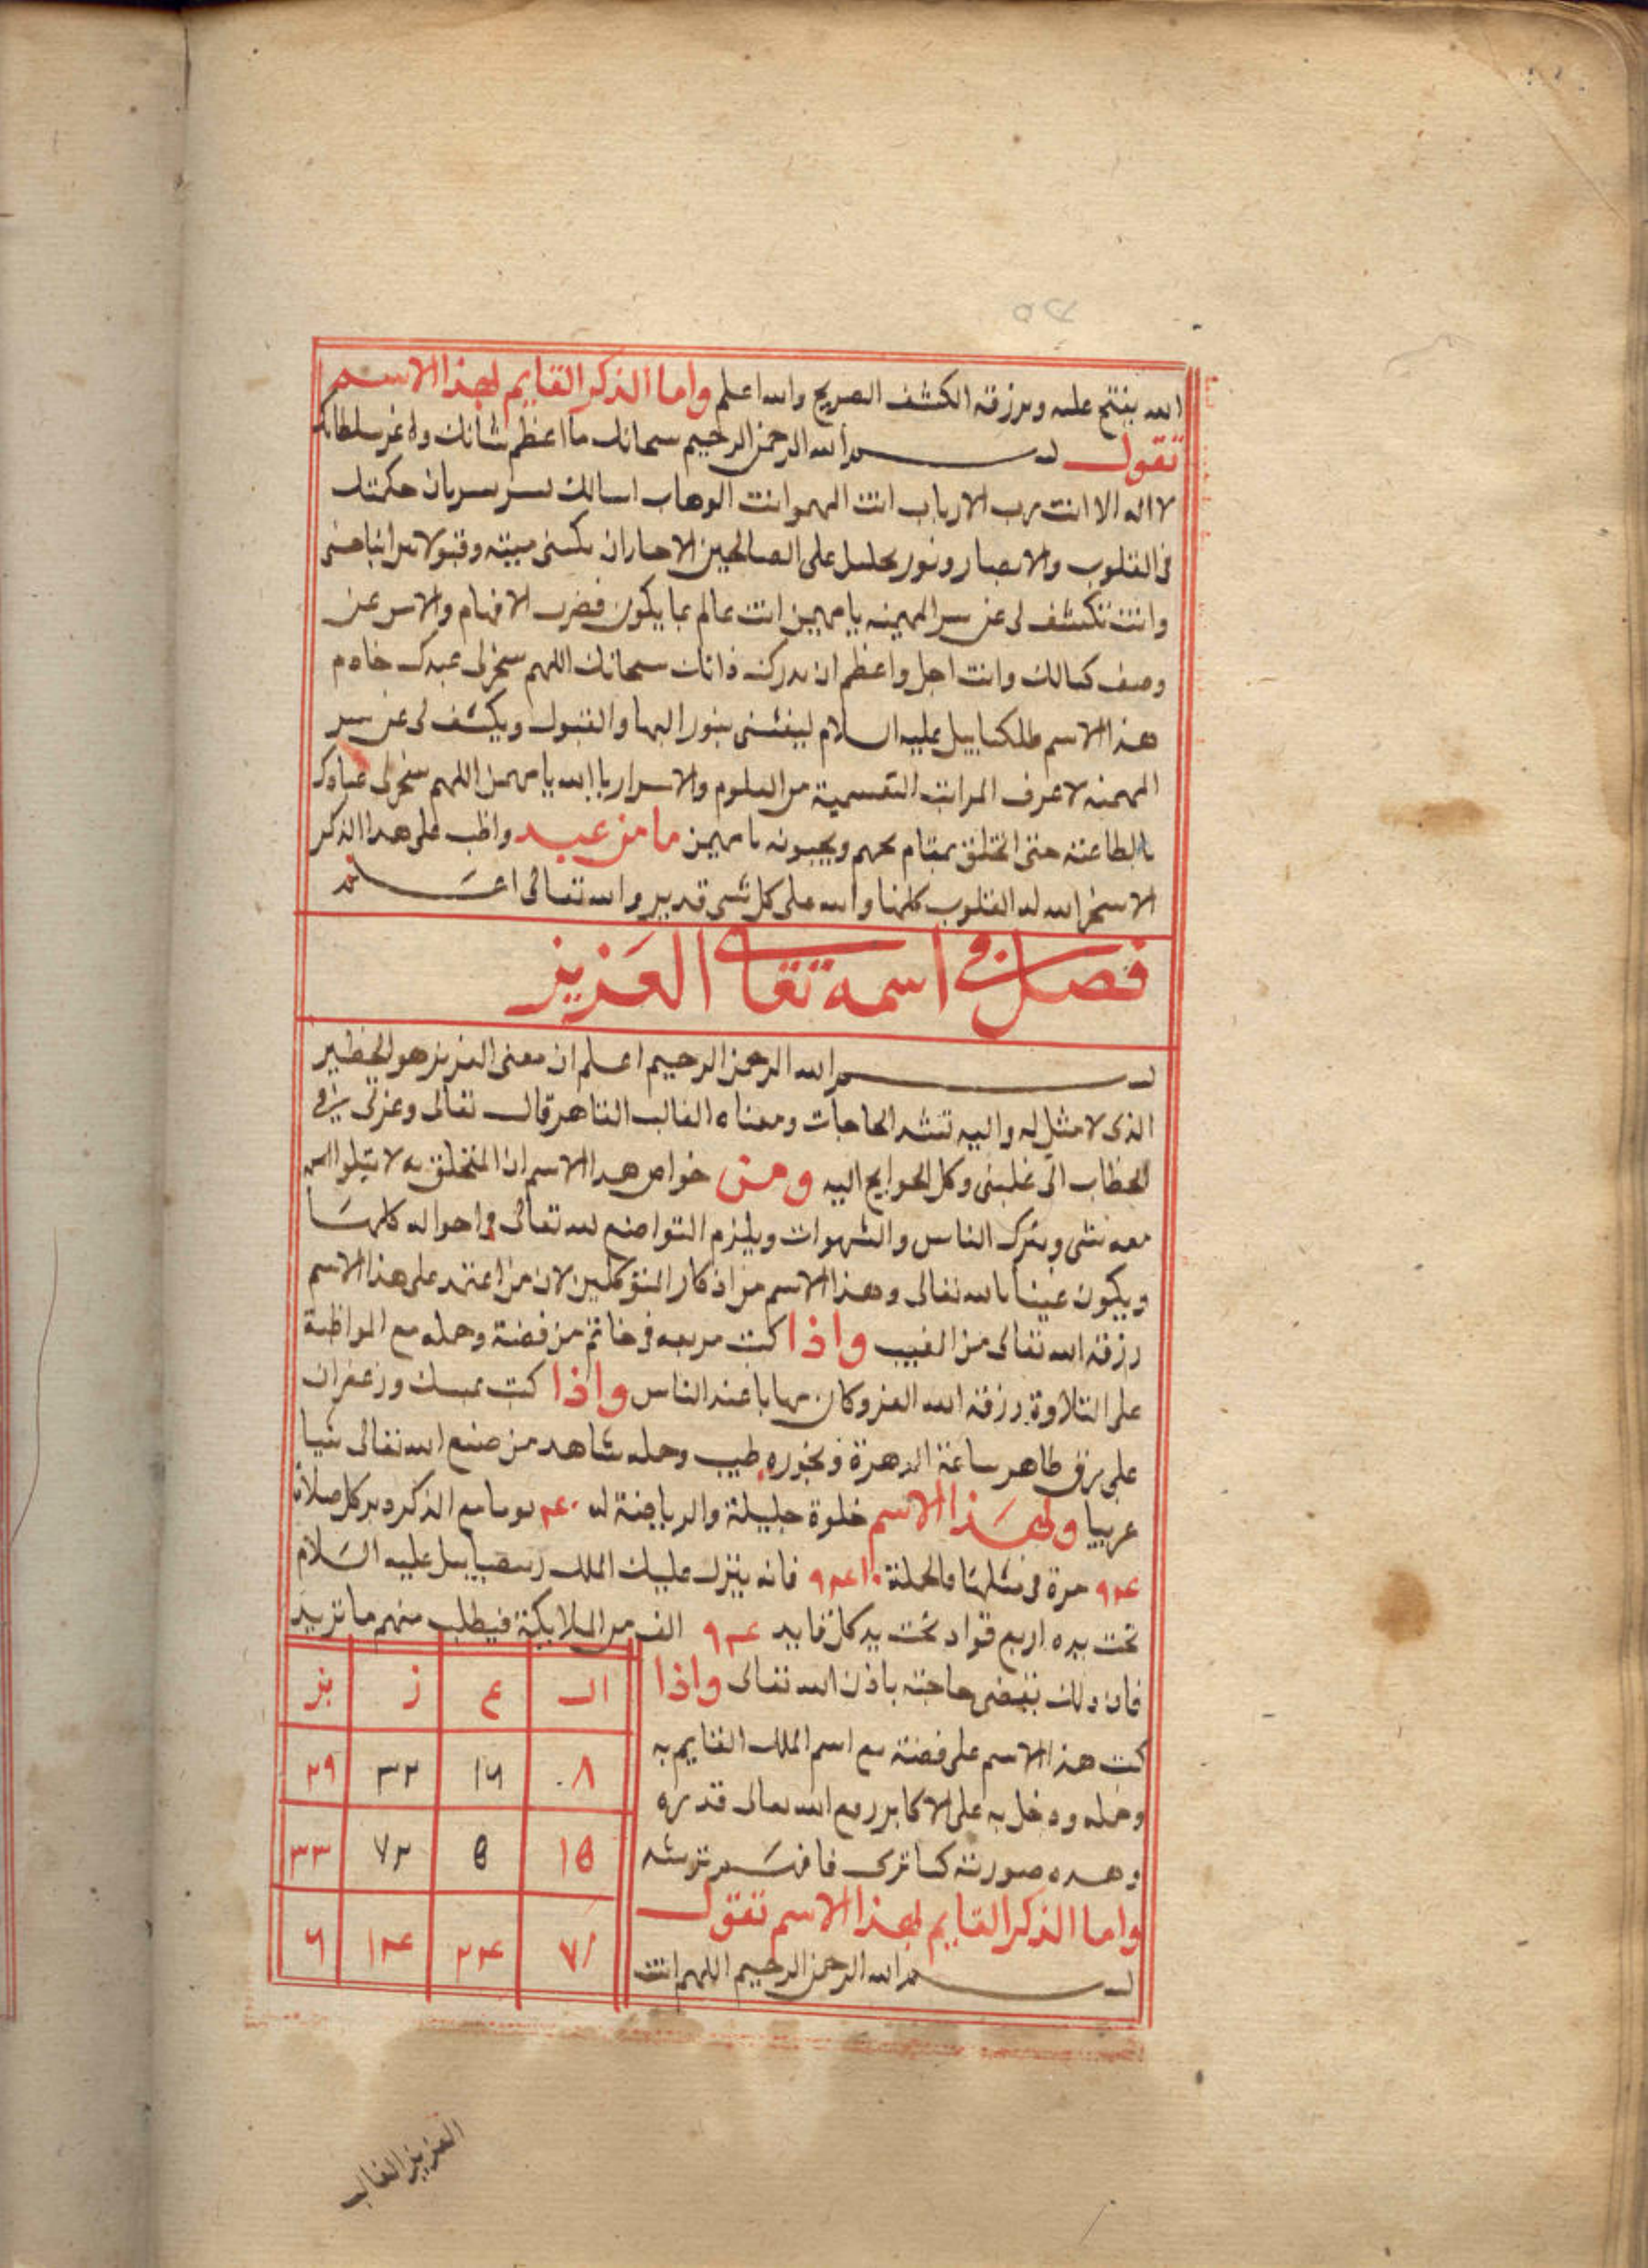 الله يفتح عليه ويرزقه الكشف الصريح والله اعلم واما الذكر القايم لهذا الاسم
تقول بسم الله الرحمن الرحيم سبحانك ما اعظم شانك واعز سلطانك
لا اله الا انت رب الارباب انت المهم وانت الوهاب اسالك بسر سريان حكمتك
في القلوب والابصار ونور على الصالحين ان هيبة وقبولا
وانت تكشف لي عن سر المهيمنه يا مهيمن انت عالم بما يكون الافهام والاسر عن
وصف كمالك وانت اجل واعظم ان يدرك ذاتك سبحانك اللهم سخر لي عبدك خادم
هذا الاسم عليه السلام ليغشني بنور البها والقبول ويكشف لي عن سر
المهمنه لاعرف المراتب من العلوم والاسرار يا الله يا مهيمن اللهم سخر لي عبادك
بالطاعة حتى اتخلق بمقام يحبهم ويحبونه يا مهيمن ما من عبد واظب على هذا الذكر
الا سخر الله له القلوب كلها والله على كل شي قدير والله تعالى اعلم
فصل في اسمه تعالى العزيز
بسم الله الرحمن الرحيم اعلم ان معنى العزيز هو الخطير
الذي لا مثل له واليه الحاجات ومعناه الغالب القاهر قال تعالى وعزني في
الخطاب اي غلبني وكل الحوايج اليه ومن خواص هذا الاسم ان المتخلق به لا
معه شي ويترك الناس والشهوات ويلزم التواضع لله تعالى في احواله كلها
ويكون غنيا بالله تعالى وهذا الاسم من اذكار المتوكلين لان من اعتمد على هذا الاسم
رزقه الله تعالى من الغيب واذا كتب مربعه في خاتم من فضة وحمله مع المواظبة
على التلاوة رزقه الله العز وكان مهابا عند الناس واذا كتب بمسك وزعفران
على رق طاهر ساعة الزهرة وبخوره طيب وحمله شاهد من صنع الله تعالى شيا
عريبا ولهذا الاسم خلوة جليلة والرياضة له ۴۰ يوما مع الذكر دبر كل صلاة
۹۴ مرة في مثلها فالجملة فانه ينزل عليك الملك عليه السلام
تحت يده اربع قواد تحت يد كل قايد ۹۴ الف من الملايكة فيطلب منهم ما تريد
فان ذلك بقضى حاجته باذن الله تعالى واذا
كتب هذا الاسم على فضة مع اسم الملك القايم به
وحمله ودخل به على الاكابر رفع الله تعالى قدره
وهذه صورته كما ترى فافهم ترشد
واما الذكر القايم لهذا الاسم تقول
بسم الله الرحمن الرحيم اللهم انت
ال ع ز يز
۸ ۱۶ ۳۲ ۲۹
۱۵ ۵ ۷۲ ۳۳
۷۱ ۳۴ ۱۴ ۶
العزيز الغالب